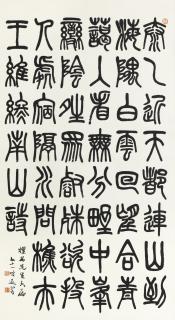 泰乙近天都連山到
海隅白雲回望合青
靄入看無分野中峯
變陰晴眾壑殊欲投
人處宿隔水問樵夫
王維終南山詩
先生大雅